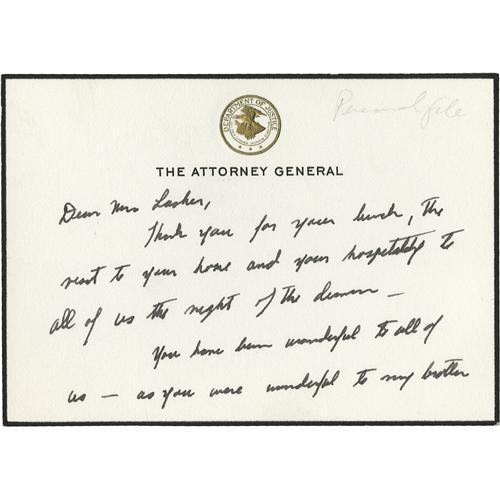 Personal file
DEPARTMENT OF JUSTICE
THE ATTORNEY GENERAL
Dear Mrs Lasker,
Thank you for your lunch, the
visit to your home and your hospitality to
all of us the night of the dinner —
You have been wonderful to all of
us — as you were wonderful to my brother